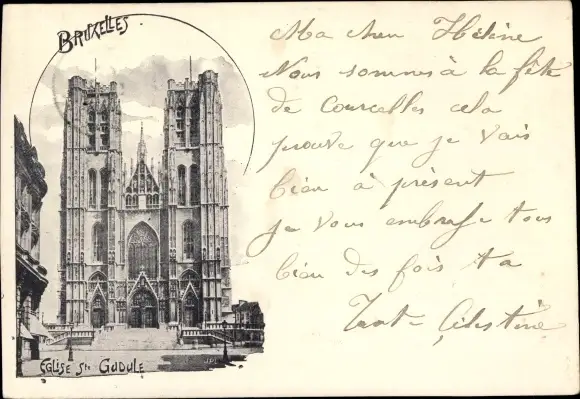 BRUXELLES
Ma chère Hélène
Nous sommes à la fête
de Courcelles cela
prouve que je vais
bien à présent
je vous embrasse tous
bien des fois ta
Tante Célestine
EGLISE Ste GUDULE